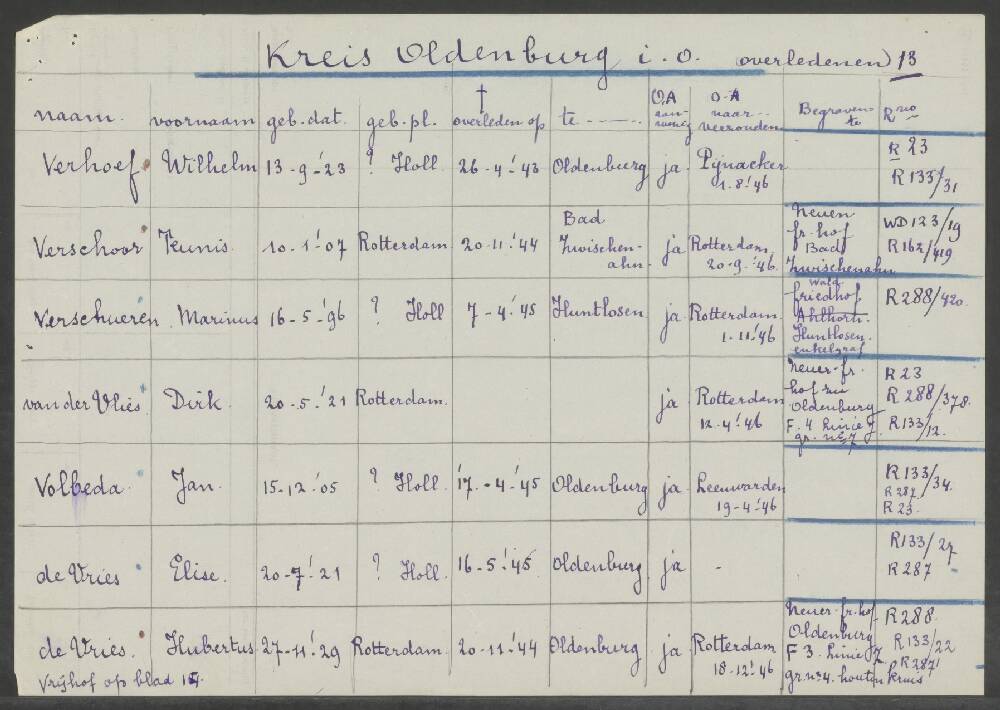 Kreis Oldenburg i.O. overledenen) 13
naam. voornaam geb.dat. geb.pl. † overleden op te ------- O.A aanwezig O-A naar verzonden Begraven te R no
Verhoef Wilhelm 13-9-'23 ? Holl 26-4-'43 Oldenburg ja Pijnacker 1.8-'46 R 23 R 133/31
Verschoor Teunis. 10-1-'07 Rotterdam 20-11-'44 Bad Zwischenahn. ja Rotterdam 20-9-'46. Neuen fr.hof Bad Zwischenahn WD 123/19 R 162/419
Verschueren Marinus 16-5-'96 ? Holl 7-4-'45 Huntlosen ja Rotterdam. 1-11-'46 Wald friedhof Ahlhorn. Huntlosen. enkelgraf R 288/420.
van der Vlies Dirk. 20-5-'21 Rotterdam. ja Rotterdam 12-4-'46 Neuer-fr. hof Oldenburg F. 4 Linie 7 R 23 R 288/378. R 133/12.
Volbeda Jan. 15-12-'05 ? Holl. 17.-4-'45 Oldenburg ja Leeuwarden 19-4-'46 R 133/34. R 287 R 23.
de Vries Elise. 20-7-'21 ? Holl. 16-5-'45 Oldenburg. ja - R 133/27 R 287
de Vries. Hubertus 27-11-'29 Rotterdam. 20-11-'44 Oldenburg ja Rotterdam 18-12-'46 Neuer-fr.hof Oldenburg F 3. Linie 7 gr.no 4. houten kruis R 288. R 133/22 R 287
Vrijhof op blad 14.